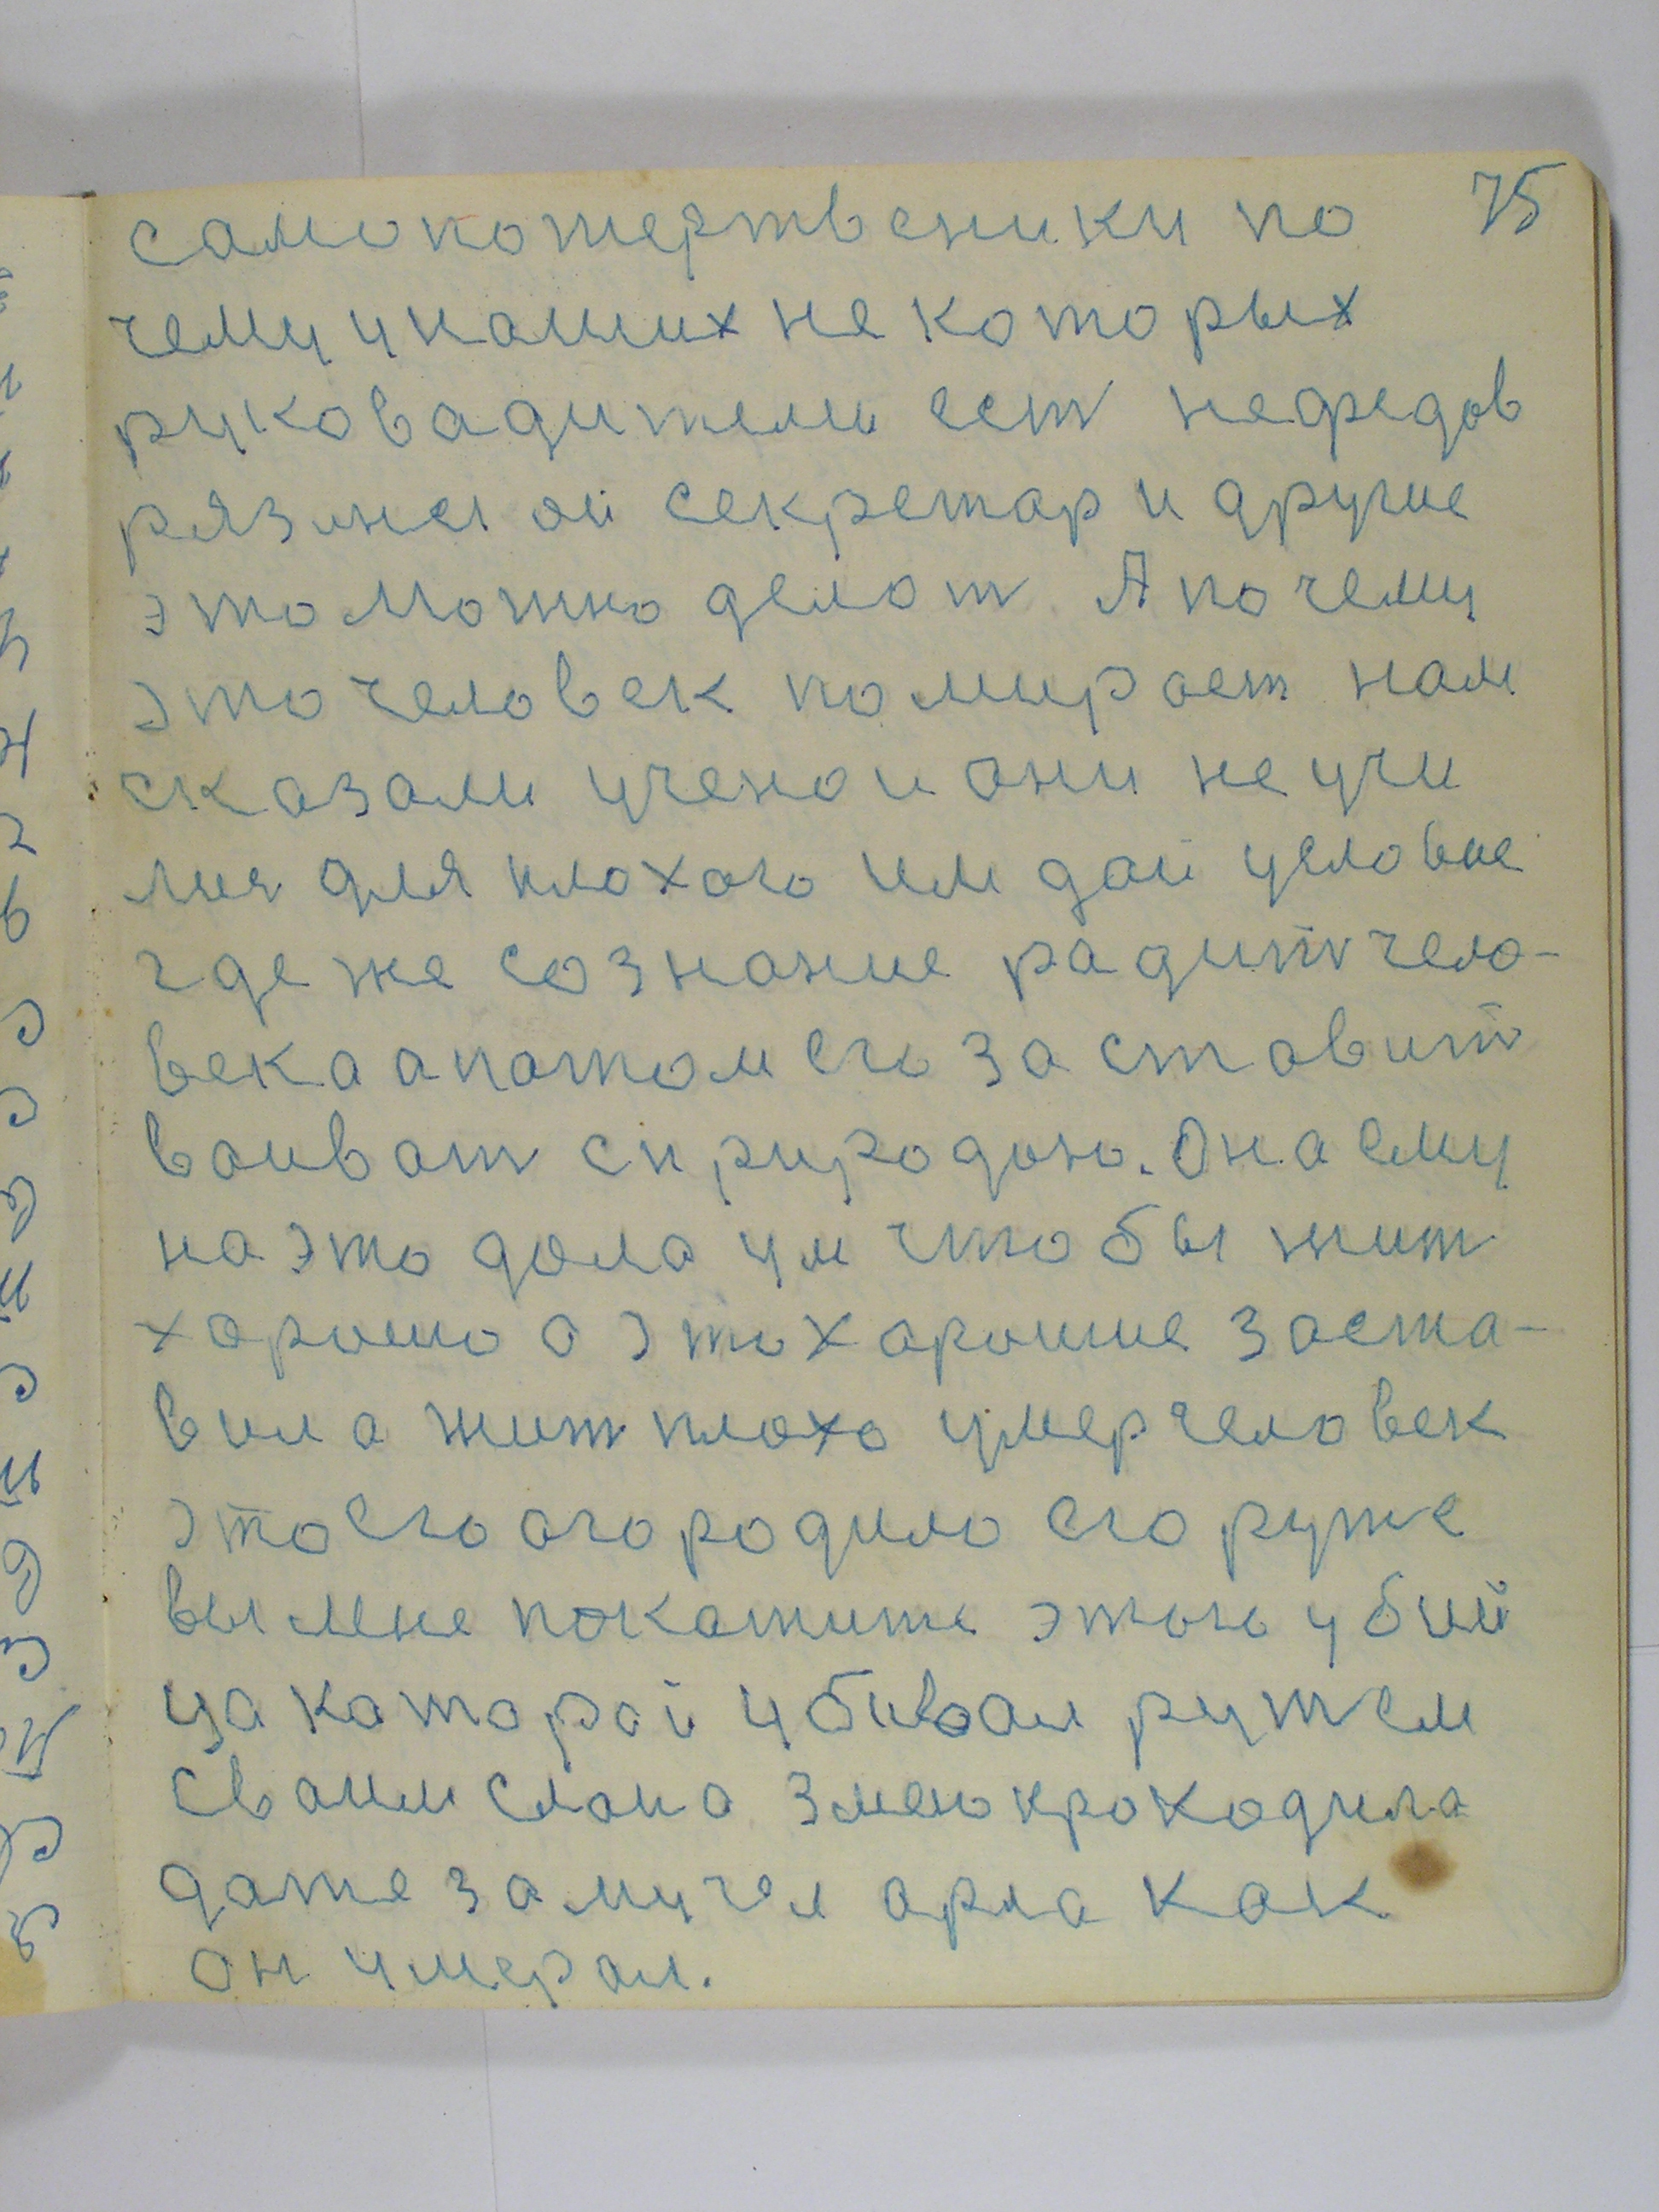 75
самопожертвеники по
чему у наших некоторых
руковадители ест нефедов
рязанской секретар и другие
это можно делат А почему
это человек помирает нам
сказали ученои они не учи
лис для плохого им дай условие
где же сознание радит чело-
века а патом его заставит
ваиват с природою. Она ему
на это дала ум что бы жит
харошо а это харошие заста-
вила жит плохо умер человек
это его огородило его руже
вы мне покажите этого убий
ца каторай убивал ружем
сваим слана змею крокодила
даже замучел арла как
он умерал.